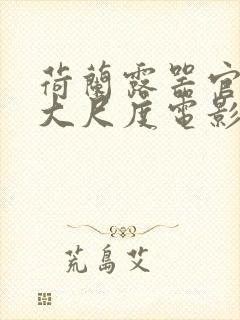 荷蘭露器官
大尺度電影
荒島艾